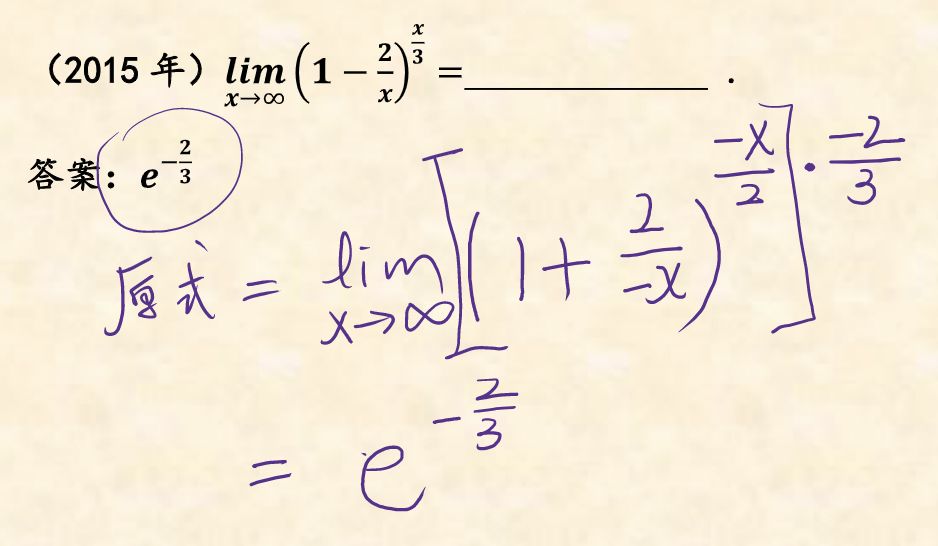 （2015 年）lim x→∞ (1 − 2/x)^(x/3) = ________ .
答案：e^(−2/3)
原式 = lim x→∞ [(1 + 2/−x)^(−x/2)]^(· −2/3)
= e^(−2/3)